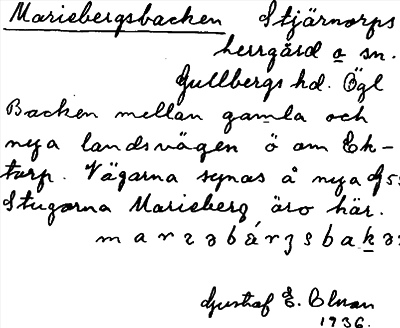 Mariebergsbacken Stjärnorps
herrgård o sn.
Gullbergs hd. Ögl
Backen mellan gamla och
nya landsvägen ö om Ek-
torp. Vägarna synas å nya G5:
Stugorna Marieberg äro här.
marɩəbárʒsbakə
Gustaf E. Olman
1936.